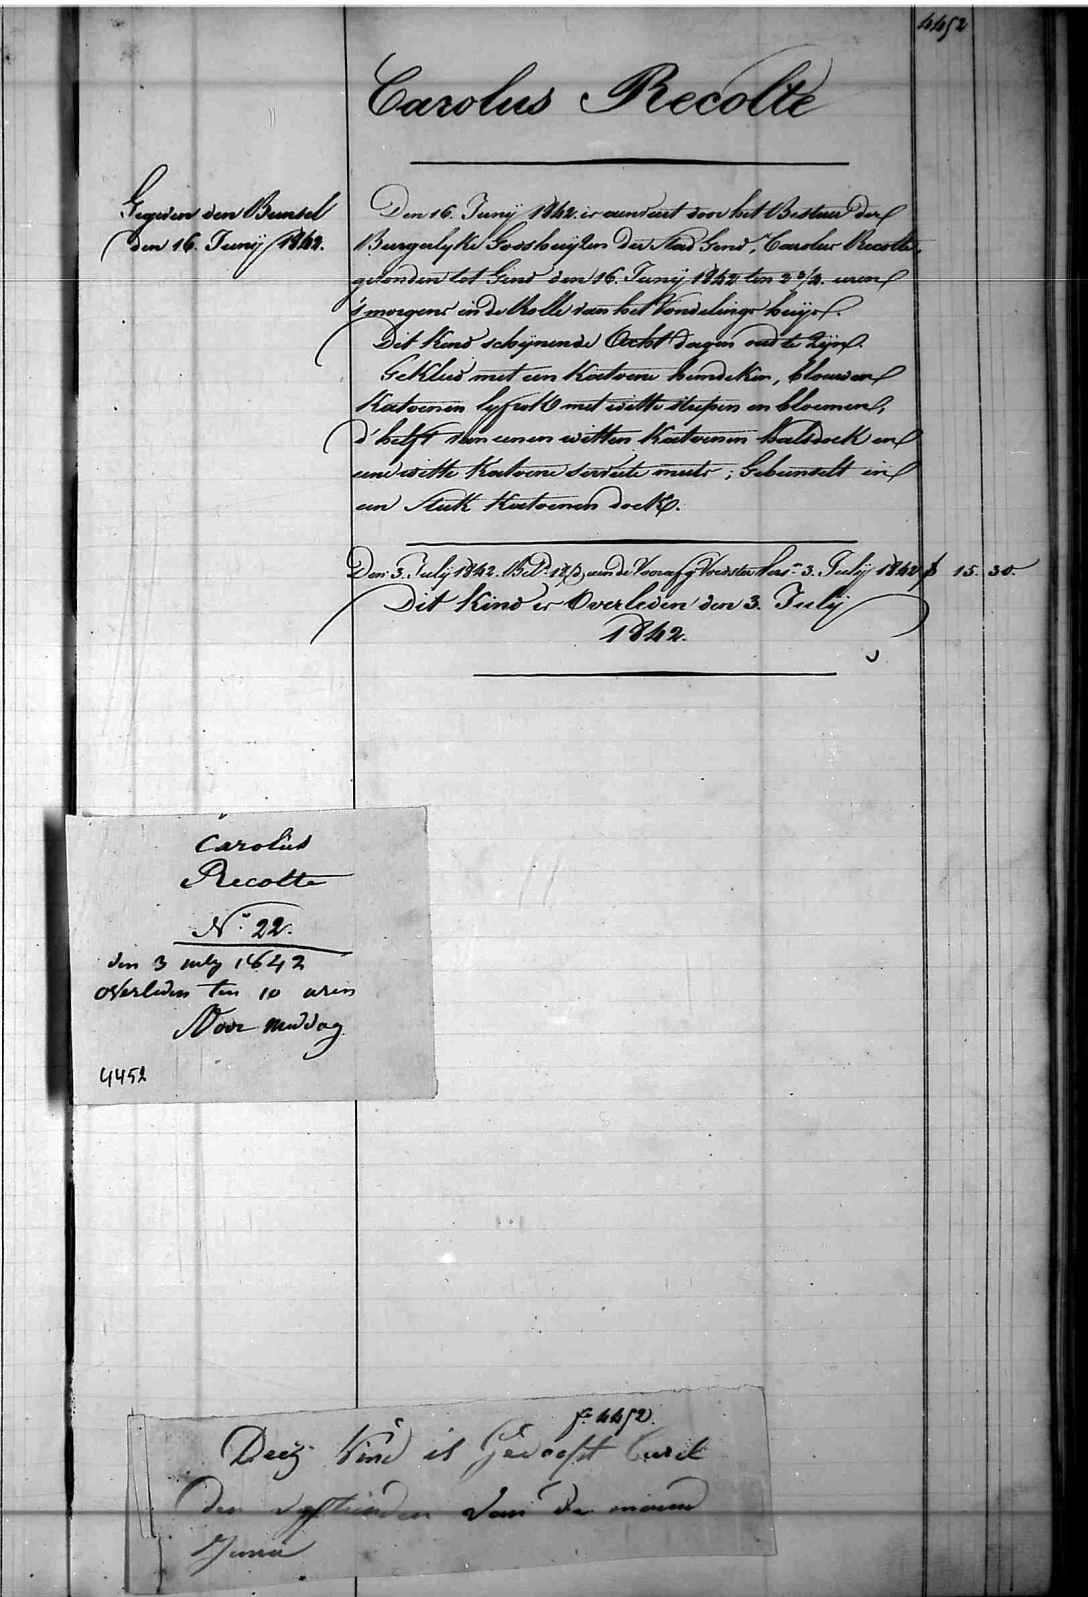 4452
Carolus Recolte
Gegeven den Bunsel
den 16. Junij 1842.
Den 16. Junij 1842. is aenveert door het Bestuer der
Burgerlyke Godshuijzen der Stad Gend, Carolus Recolte,
gevonden tot Gend den 16. Junij 1842 ten 2 3/4. uren
's morgens in de Rolle van het Vondelings huijs.
Dit Kind schijnende Acht dagen oud te zijn.
Gekleed met een Katoene hemdeken, blouwen
Katoenen lyfrok met witte streepen en bloemen,
d'helft van eenen witten Katoenen halsdoek en
eene witte Katoene serviete muts; Gebunselt in
een Stuk Katoenen doek.
Den 3. July 1842. Betd. aen de Voorafg. Voedster 3. Julij 1842 15. 30.
Dit Kind is Overleden den 3. Julij
1842.
Carolus
Recolte
No. 22.
den 3 july 1842
overleden ten 10 uren
Voor middag
4452
fo. 4452.
Deez Kind is Gedoopt Carel
den vyftienden van de maend
Juni